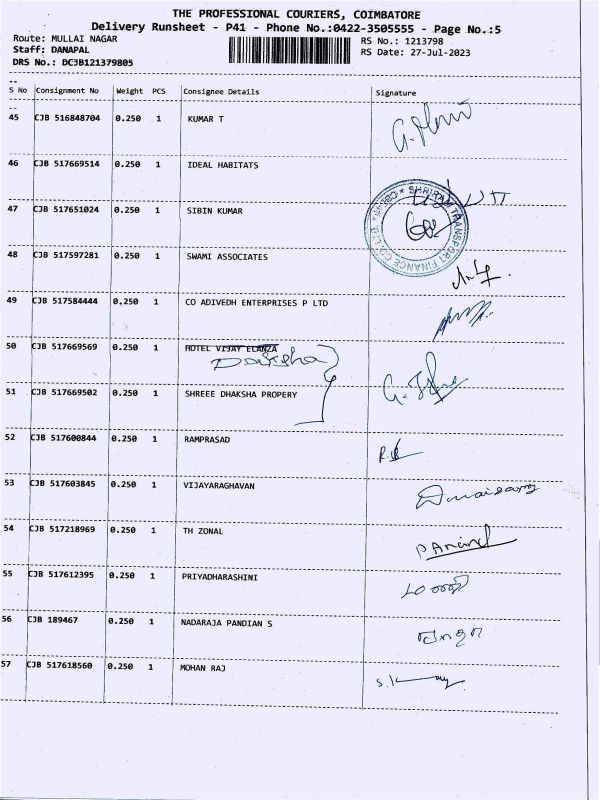 THE PROFESSIONAL COURIERS, COIMBATORE
Delivery Runsheet - P41 - Phone No.:0422-3505555 - Page No.:5
Route: MULLAI NAGAR RS No.: 1213798
Staff: DANAPAL RS Date: 27-Jul-2023
DRS No.: DCJB121379805
S No Consignment No Weight PCS Consignee Details Signature
45 CJB 516848704 0.250 1 KUMAR T
46 CJB 517669514 0.250 1 IDEAL HABITATS
47 CJB 517651024 0.250 1 SIBIN KUMAR
SHRIRAM TRANSPORT FINANCE CO. LTD.
48 CJB 517597281 0.250 1 SWAMI ASSOCIATES
49 CJB 517584444 0.250 1 CO ADIVEDH ENTERPRISES P LTD
50 CJB 517669569 0.250 1 HOTEL VIJAY ELANZA
Daksha
51 CJB 517669502 0.250 1 SHREEE DHAKSHA PROPERY
52 CJB 517600844 0.250 1 RAMPRASAD
53 CJB 517603845 0.250 1 VIJAYARAGHAVAN
54 CJB 517218969 0.250 1 TH ZONAL
P Anand
55 CJB 517612395 0.250 1 PRIYADHARASHINI
56 CJB 189467 0.250 1 NADARAJA PANDIAN S
57 CJB 517618560 0.250 1 MOHAN RAJ